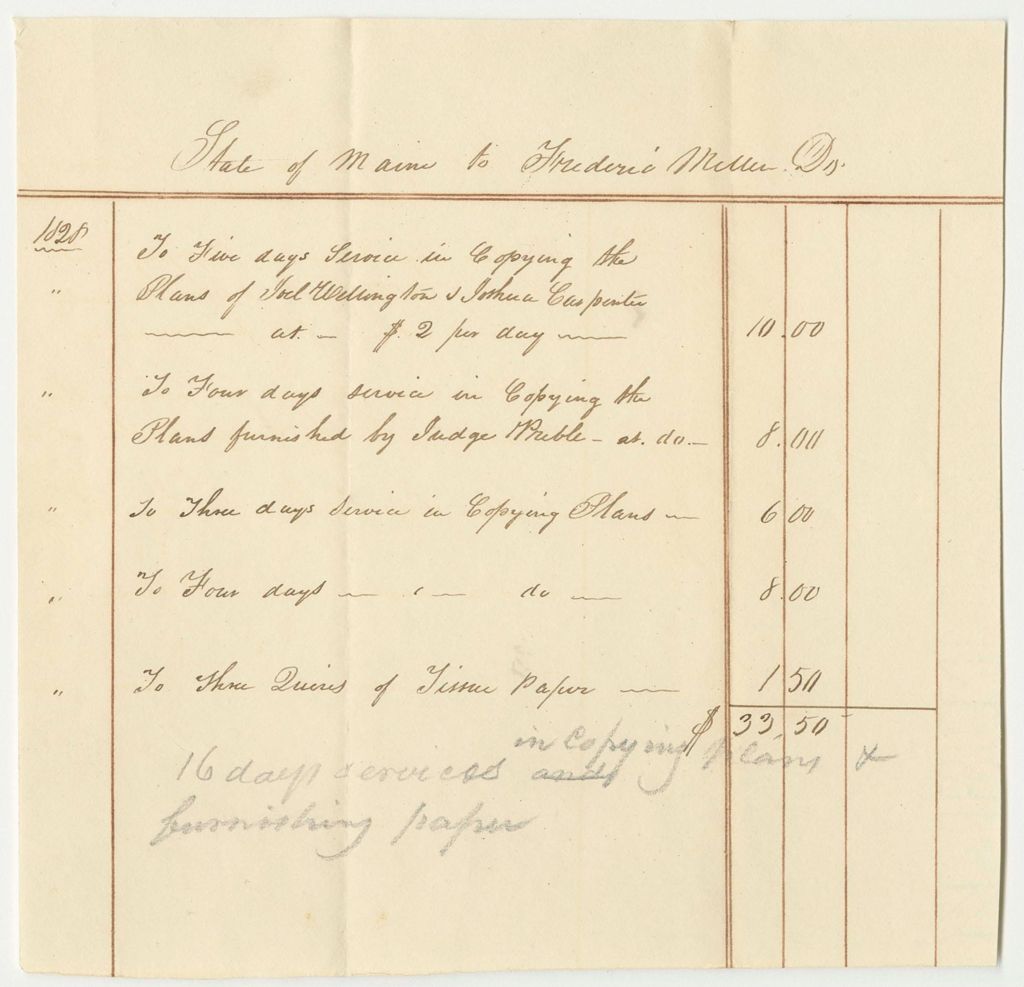 State of Maine to Frederic Mellen Dr.
1828
To Five days Service in Copying the
" Plans of Joel Wellington & Joshua Carpenter
at. $. 2 per day 10.00
" To Four days service in Copying the
Plans furnished by Judge Preble - at. do. - 8.00
" To Three days Service in Copying Plans 6 00
" To Four days " do 8.00
" To three Quires of Tissue Paper 1 50
$ 33.50
in Copying plans &
16 days services and
furnishing paper